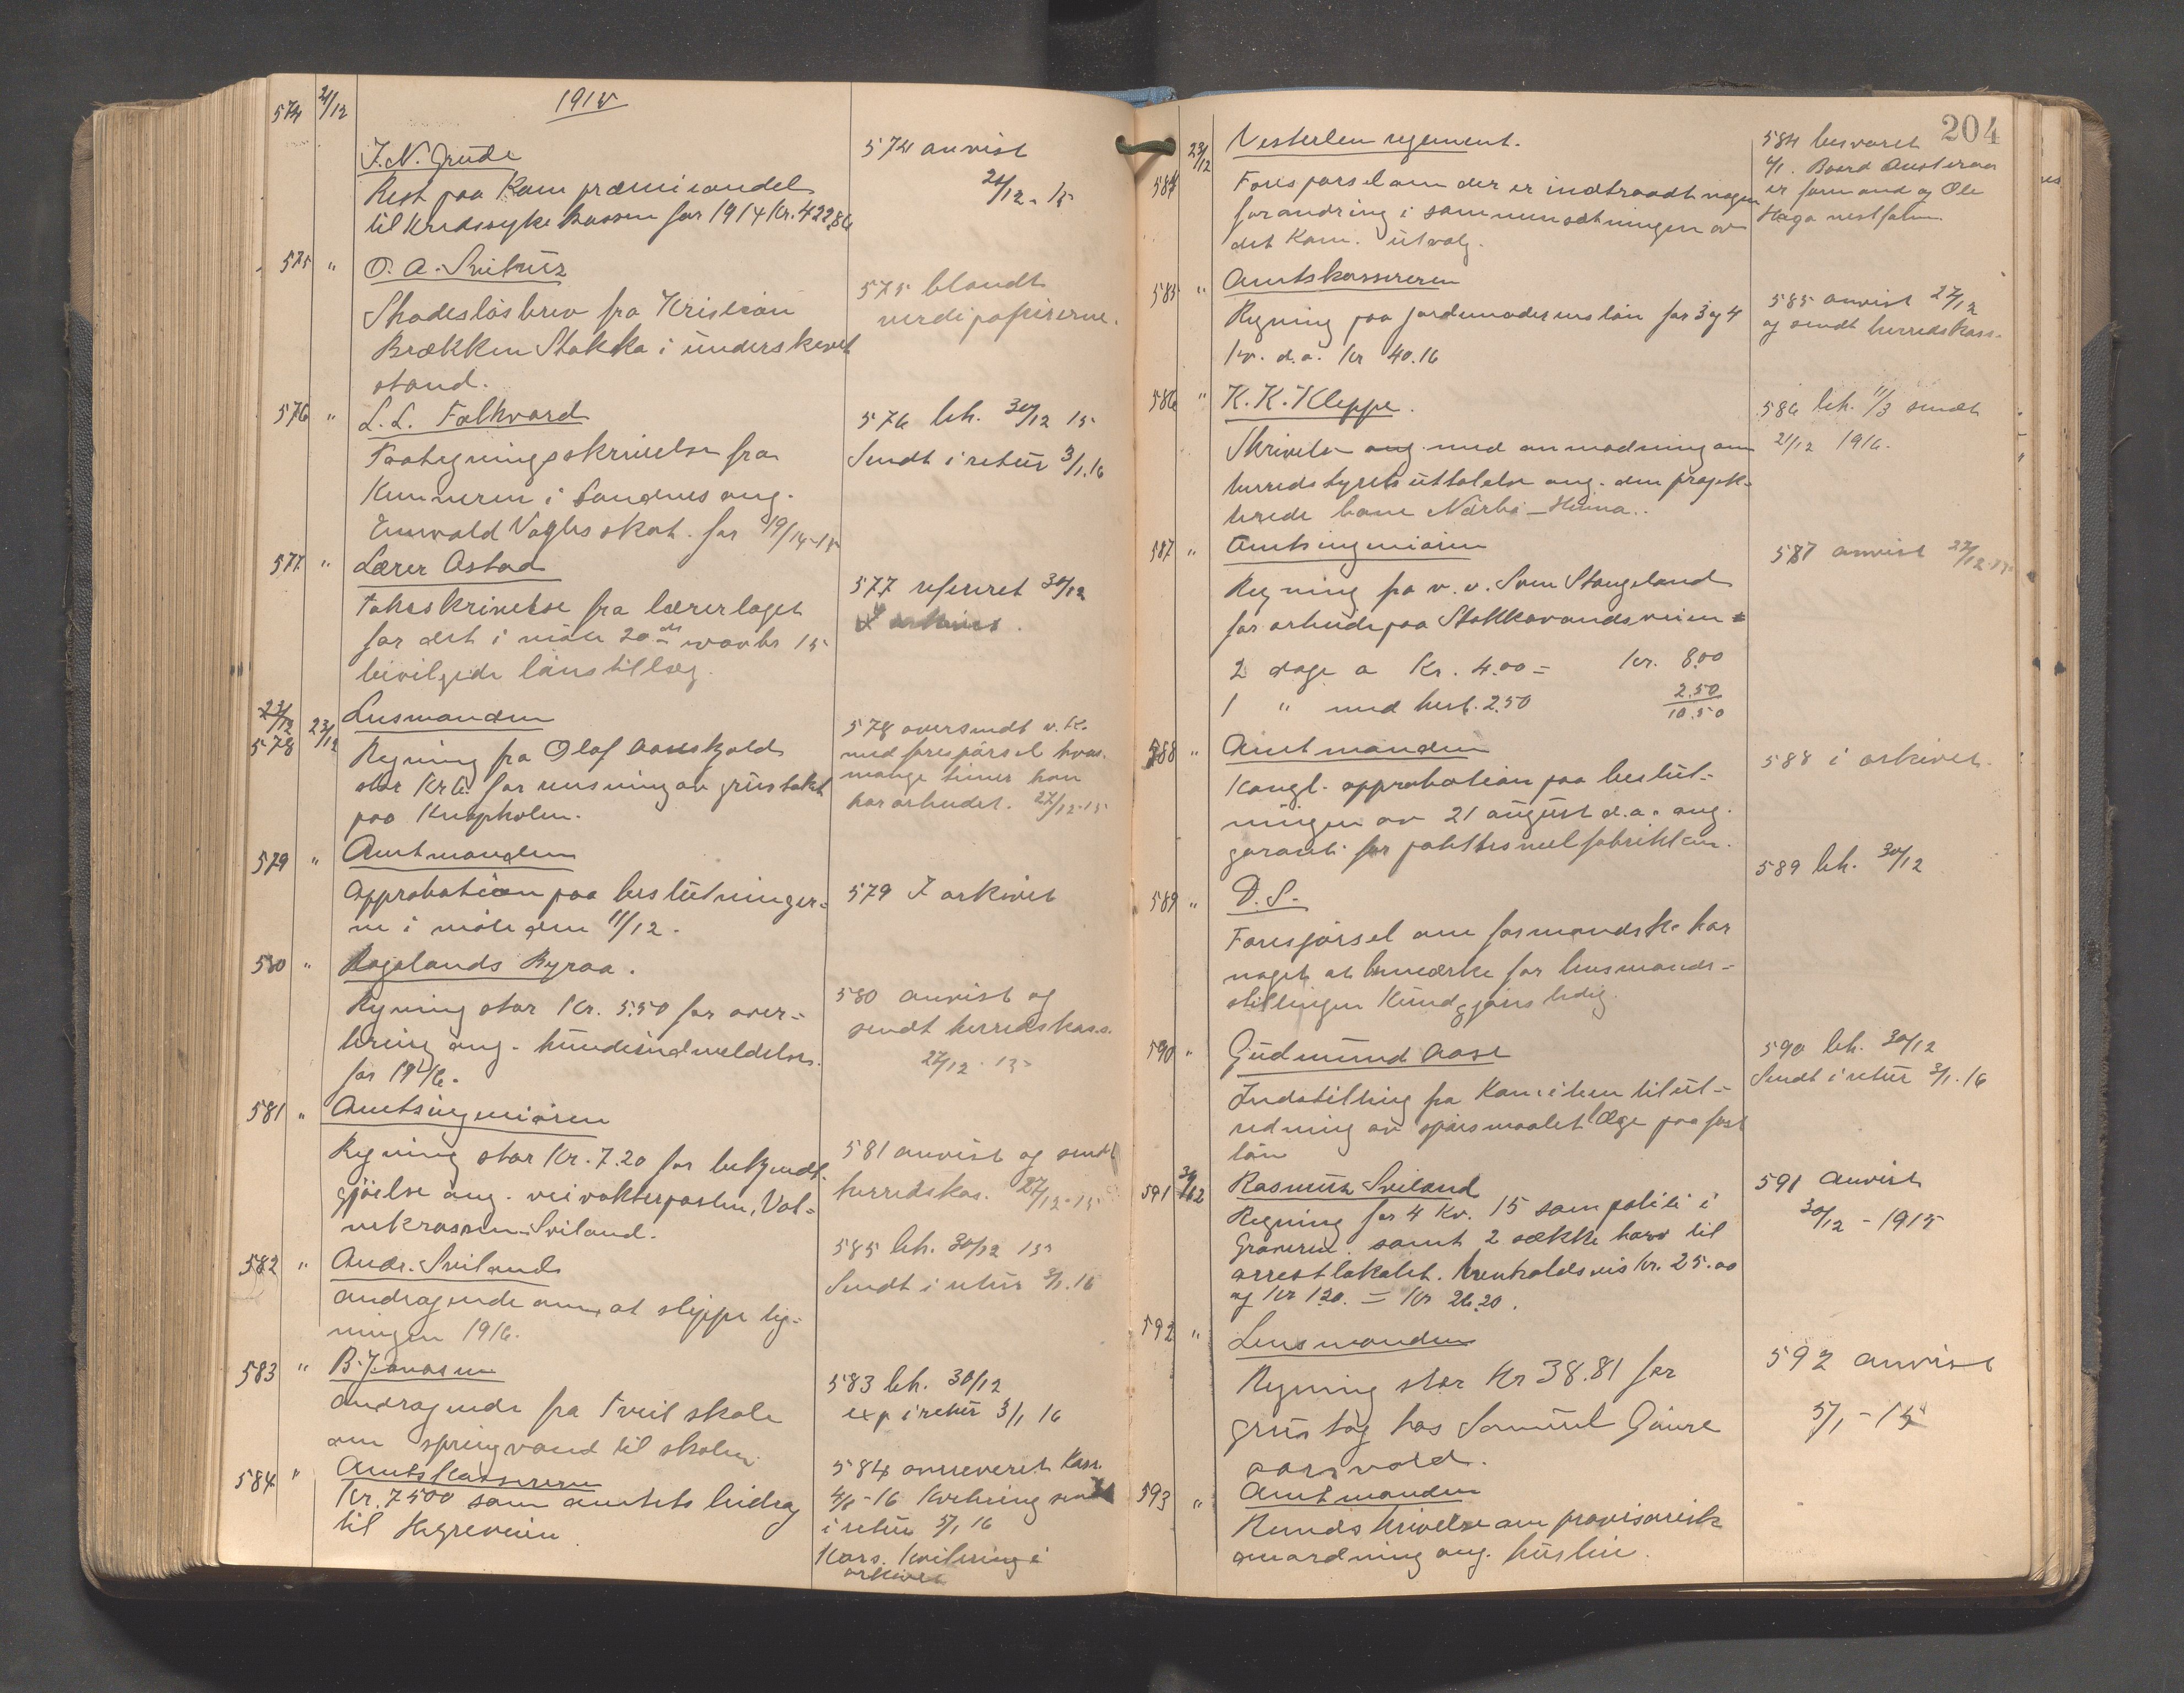 574 21/12 1915
J. N. Grude
Rest paa Kom præmieandel
til Kredssykekassen for 1914 Kr. 422,86
574 anvist
21/12 - 15
575 "
O. A. Sviland
Skadesløsbrev fra Kristian
Brækken Stokka i underskrevet
stand.
575 blandt
verdipapirerne.
576 "
L. L. Folkvord
Paategningsskrivelse fra
Kemneren i Sandnes ang.
Vagles skat. for 19/14-15
576 beh. 30/12 15
Sendt i retur 3/1. 16
577 "
Lærer Astad
Takkskrivelse fra lærerlaget
for det i møte 20de novbr 15
bevilgede lønstillæg.
577 refereret 30/12
arkivet.
23/12
578 23/12
Lensmanden
Regning fra Olof Aanskjold
stor Kr 6. for rensning av grustaket
paa Knapholen.
578 oversendt v. K.
med forespørsel hvor-
mange timer han
har arbeidet. 27/12-15
579 "
Amtmanden
Approbation paa beslutninger-
ne i møte den 11/12.
579 I arkivet
580 "
Rogalands Byraa.
Regning stor Kr. 5.50 for aver-
tering ang. hundeindmeldelse.
for 1916.
580 anvist og
sendt herredskass.
27/12. 15
581 "
Amtsingeniøren
Regning stor Kr. 7.20 for bekjendt-
gjørelse ang. veivokterposten, Vat-
nekrossen-Sviland.
581 anvist og sendt
herredskas. 27/12-15
582 "
Andr. Sviland
andragende om at slippe lig-
ningen 1916.
585 beh. 30/12 15
Sendt i retur 3/1. 16
583 "
B. Jonasen
andragende fra Tveit skole
om springvand til skolen.
583 beh. 30/12
exp i retur 3/1 16
584 "
Amtskassereren
Kr. 7500 som amtets bidrag
til Høgreveien
584 Kass.
4/1-16 Kvittering sendt
i retur 5/1 16
Kass. Kvittering i
arkivet
204
23/12
584
Vesterlen regement.
Forespørsel om der er indtraadt nogen
forandring i sammensætningen av
det Kom. utvalg.
584 besvaret
4/1. Baard Austeraa
er formand og Ole
Haga nestform.
585 "
Amtskassereren
Regning paa jordemoderens løn for 3 og 4
kv. d.a. Kr 40.16
585 anvist 27/12
og sendt herredskass.
586 "
K. K. Kleppe.
Skrivelse ang. med anmodning om
herredstyrets uttalelse ang. den projek-
terede bane Nærbø - Hinna.
586 beh. 11/3 sendt
21/12 1916.
587 "
Amtsingeniøren
Regning fra v. v. Sven Stangeland
for arbeide paa Stokkavandsveien
2 dage a Kr. 4.00 = Kr. 8.00
1 " med hest. 2.50 2.50
10.50
587 anvist 27/12-15
588 "
Amtmanden
Kongl. approbation paa beslut-
ningen av 21 august d.a. ang.
garanti for potetesmelfabrikken.
588 i arkivet.
589 "
D. S.
Forespørsel om formandsk. har
noget at bemærke før lensmands-
stillingen kundgjøres ledig.
589 beh. 30/12
590 "
Gudmund Aase
Indstilling fra Komiteen til ut-
redning av spørsmaalet læge paa fast
løn
590 beh. 30/12
Sendt i retur 3/1. 16
591 30/12
Rasmus Sviland
Regning for 4 Kv. 15 som politi i
Graveren. samt 2 sække til
arrestlokalet. henholdsvis Kr. 25.00
og Kr 1.20. = Kr 26.20.
591 Anvist
30/12 - 1915
592 "
Lensmanden
Regning stor Kr 38.81 for
grus tag hos Samuel Gjoure
592 anvist
5/1 - 15
593 "
Amtmanden
Rundskrivelse om provisorisk
anordning ang. husleie.